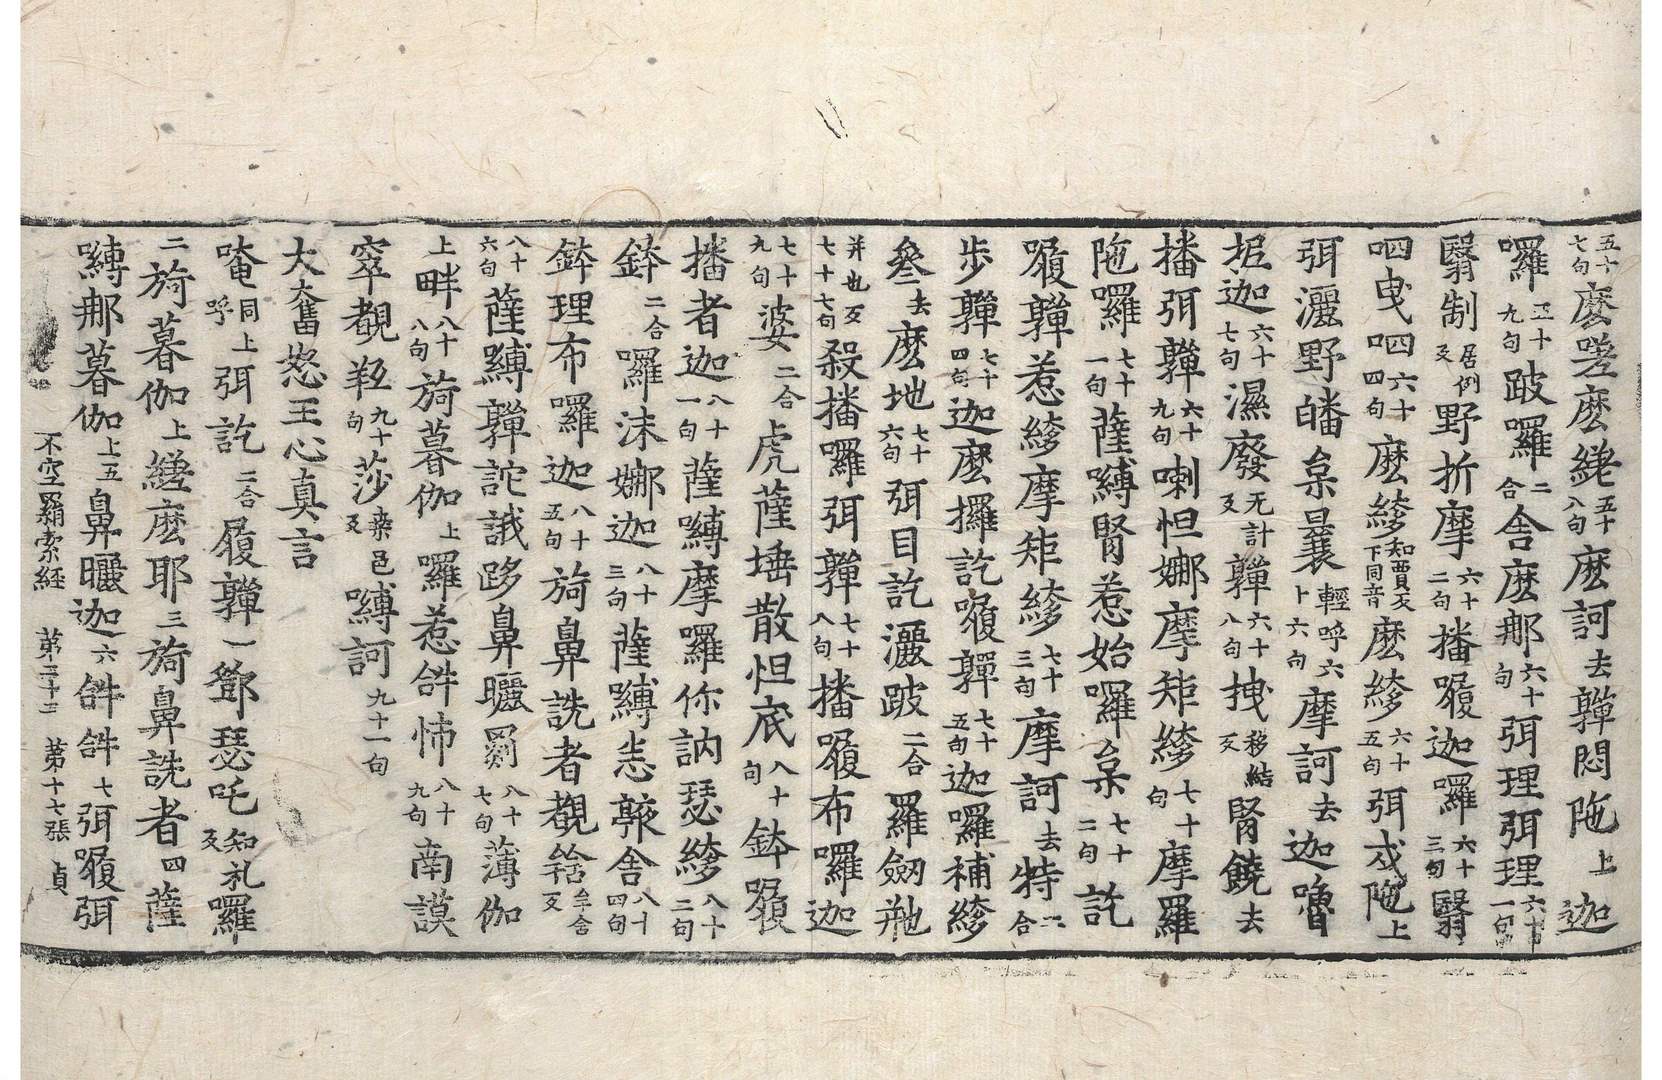 五十七句麽㘄麽㲠五十八句麽訶去嚲悶陁上迦
囉五十九句跛囉二合舍麽那六十句弭理弭理六十一句
翳制居例反野折摩六十二句播履迦囉六十三句翳
呬曳呬六十四句麽㗚知賈反下同音麽㗚六十五句弭戍陁上
弭灑野皤枲曩輕呼六十六句摩訶去迦嚕
抳迦六十七句濕廢无計反嚲六十八句拽移結反腎饒去
播弭嚲六十九句喇怛娜摩矩㗚七十句摩羅
陁囉七十一句薩縛腎惹始囉枲七十二句訖
㗚嚲惹㗚摩矩㗚七十三句摩訶去特二合
步嚲七十四句迦麽攞訖㗚嚲七十五句迦囉補㗚
叅去麽地七十六句弭目訖灑跛二合羅劔㐌
并也反七十七句殺播囉弭嚲七十八句播履布囉迦
七十九句婆二合虎薩埵散怛底八十句鉢履
播者迦八十一句薩縛摩囉你訥瑟㗚八十二句
鉢二合囉沫娜迦八十三句薩縛恚㰤舍八十四句
鉢理布囉迦八十五句旖鼻詵者覩𦧇反
八十六句薩縛嚲詑誐跢鼻曬罽八十七句薄伽
上畔八十八句旖暮伽上囉惹㖃怖八十九句南謨
窣覩羝九十句莎桒邑反嚩訶九十一句
大大奮怒王心真言
唵同上呼弭訖二合履嚲一鄧瑟吒知礼反囉
二旖暮伽上纥麽耶三旖鼻詵者四薩
嚩那暮伽上五鼻曬迦六㖃㖃七弭履弭
不空羂索経　第三十三　第十七張　貞